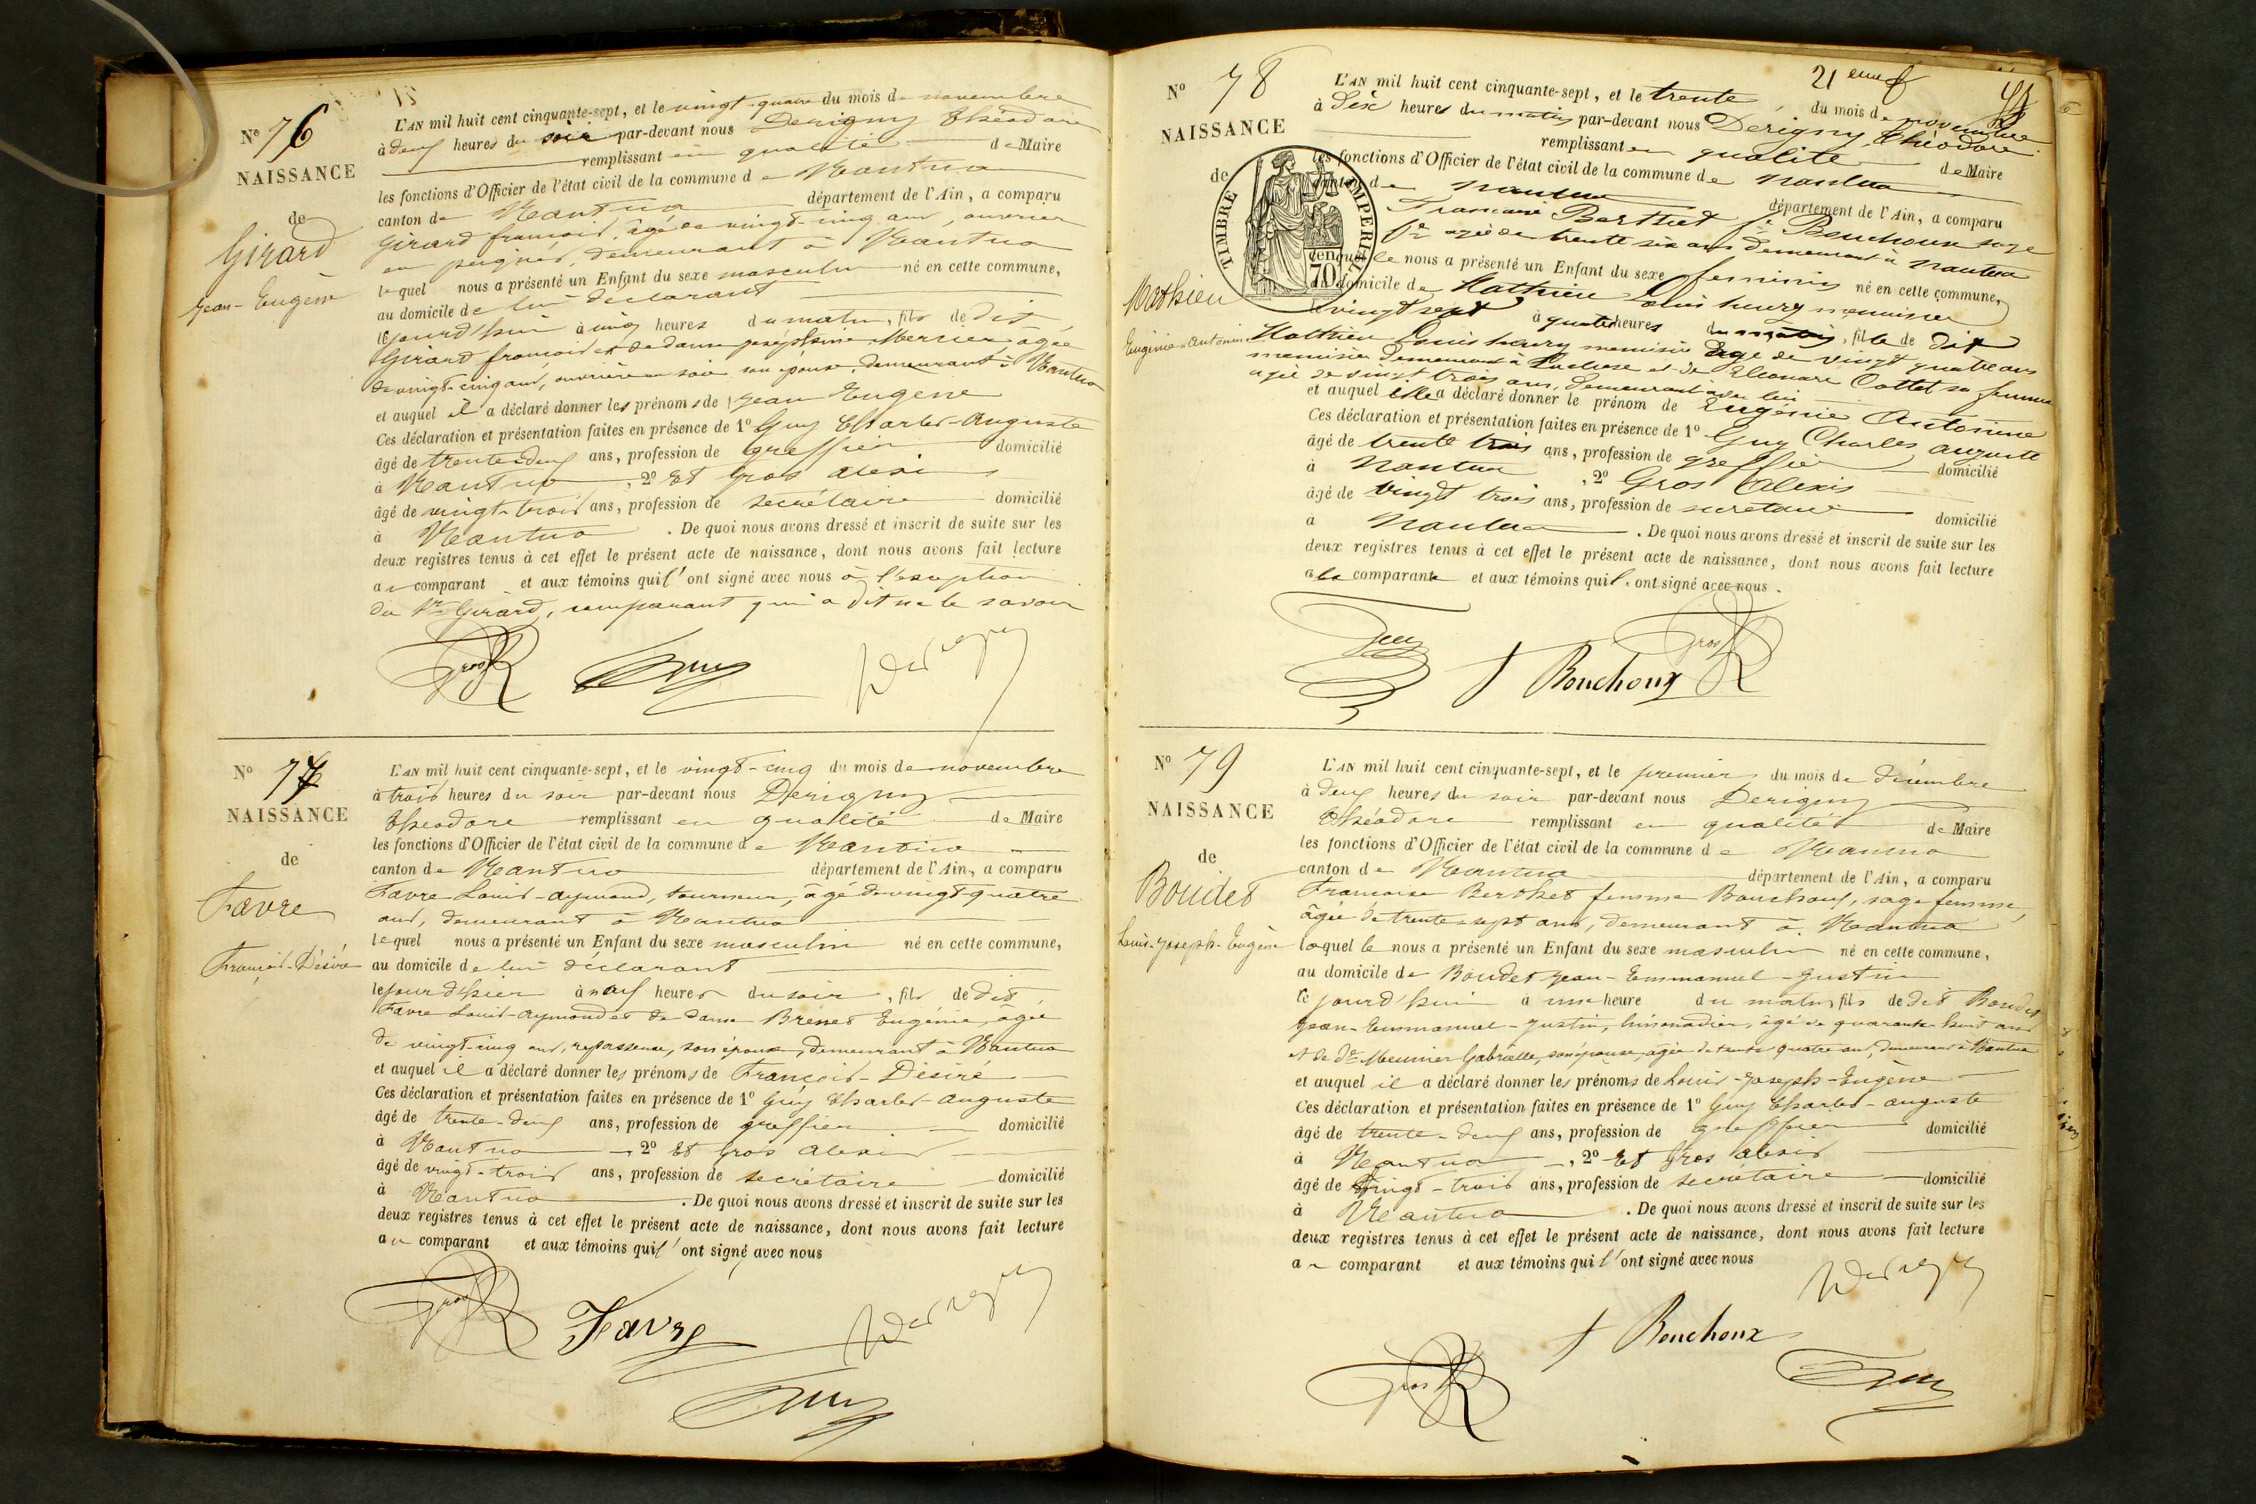 Nº 76
NAISSANCE
de
Girard
Jean-Eugène
L'AN mil huit cent cinquante-sept, et le vingt-quatre du mois de novembre
à deux heures du soir par-devant nous Derigny Théodore
remplissant en qualité de Maire
les fonctions d'Officier de l'état civil de la commune de Nantua
canton de Nantua département de l'Ain, a comparu
Girard françois, âgé de vingt-cinq ans, ouvrier
en peignes, demeurant à Nantua
lequel nous a présenté un Enfant du sexe masculin né en cette commune,
au domicile de lui déclarant
le jourd'hui à cinq heures du matin, fils de dit
Girard françois et de dame joséphine Mercier âgée
de vingt-cinq ans, ouvrière en soie son épouse, demeurant à Nantua
et auquel il a déclaré donner les prénoms de Jean Eugene
Ces déclaration et présentation faites en présence de 1º Guy Charles-Auguste
âgé de trente-deux ans, profession de greffier domicilié
à Nantua, 2º Et Gros alexis
âgé de vingt-trois ans, profession de secrétaire domicilié
à Nantua. De quoi nous avons dressé et inscrit de suite sur les
deux registres tenus à cet effet le présent acte de naissance, dont nous avons fait lecture
au comparant et aux témoins qui l'ont signé avec nous à l'exception
du Sr Girard, comparant qui a dit ne le savoir
Gros Guy Derigny
Nº 77
NAISSANCE
de
Favre
François-Désiré
L'AN mil huit cent cinquante-sept, et le vingt-cinq du mois de novembre
à trois heures du soir par-devant nous Derigny
Théodore remplissant en qualité de Maire
les fonctions d'Officier de l'état civil de la commune de Nantua
canton de Nantua département de l'Ain, a comparu
Favre Louis-aymond, tourneur, âgé de vingt quatre
ans, demeurant à Nantua
lequel nous a présenté un Enfant du sexe masculin né en cette commune,
au domicile de lui déclarant
le jour d'hier à neuf heures du soir, fils de dit
Favre Louis-aymond et de dame Brenet Eugénie, agée
de vingt-cinq ans, repasseuse, son épouse, demeurant à Nantua
et auquel il a déclaré donner les prénoms de François-Désiré
Ces déclaration et présentation faites en présence de 1º Guy Charles-auguste
âgé de trente-deux ans, profession de greffier domicilié
à Nantua 2º Et Gros alexis
âgé de vingt-trois ans, profession de secrétaire domicilié
à Nantua. De quoi nous avons dressé et inscrit de suite sur les
deux registres tenus à cet effet le présent acte de naissance, dont nous avons fait lecture
au comparant et aux témoins qui l'ont signé avec nous
Gros Favre Derigny
Guy
21 eme f
Nº 78
NAISSANCE
de
TIMBRE IMPERIAL
70 Cent
Mathieu
Eugénie-Antonine
L'AN mil huit cent cinquante-sept, et le trente du mois de novembre
à Dix heures du matin par-devant nous Derigny Théodore
remplissant en qualité de Maire
les fonctions d'Officier de l'état civil de la commune de Nantua
canton de nantua département de l'Ain, a comparu
Francoise Berthet fe Bouchoux sage
fe agée de trente six ans demeurant à nantua
lequel le nous a présenté un Enfant du sexe feminin né en cette commune,
au domicile de Mathieu Louis henry menuisier
le vingt sept à quatre heures du matin, fille de dit
Mathieu Louis henry menuisier age de vingt quatre ans
menuisier demeurant à et de Eleonare Cottet sa femme
agée de vingt trois ans, demeurant avec lui
et auquel elle a déclaré donner le prénom de Eugénie Antonine
Ces déclaration et présentation faites en présence de 1º Guy Charles auguste
âgé de trente trois ans, profession de greffier domicilié
à Nantua, 2º Gros Alexis
âgé de vingt trois ans, profession de secretaire domicilié
à Nantua. De quoi nous avons dressé et inscrit de suite sur les
deux registres tenus à cet effet le présent acte de naissance, dont nous avons fait lecture
a la comparante et aux témoins qui l'ont signé avec nous.
Guy f Bouchoux Gros
Nº 79
NAISSANCE
de
Boudet
Louis-Joseph-Eugène
L'AN mil huit cent cinquante-sept, et le premier du mois de décembre
à deux heures du soir par-devant nous Derigny
Théodore remplissant en qualité de Maire
les fonctions d'Officier de l'état civil de la commune de Nantua
canton de Nantua département de l'Ain, a comparu
Francoise Berthet femme Bouchoux, sage femme,
âgée de trente-sept ans, demeurant à Nantua
laquel le nous a présenté un Enfant du sexe masculin né en cette commune,
au domicile de Boudet Jean-Emmanuel-Justin
le jourd'hui à une heure du matin, fils de dit Boudet
Jean-Emmanuel-Justin, limonadier, âgé de quarante huit ans
et de de Meunier Gabrielle, son épouse, agée de trente quatre ans, demeurant à Nantua
et auquel il a déclaré donner les prénoms de Louis-Joseph-Eugène
Ces déclaration et présentation faites en présence de 1º Guy Charles-auguste
âgé de trente-deux ans, profession de greffier domicilié
à Nantua, 2º Et Gros alexis
âgé de vingt-trois ans, profession de secrétaire domicilié
à Nantua. De quoi nous avons dressé et inscrit de suite sur les
deux registres tenus à cet effet le présent acte de naissance, dont nous avons fait lecture
au comparant et aux témoins qui l'ont signé avec nous
Derigny
f Bouchoux
Gros Guy